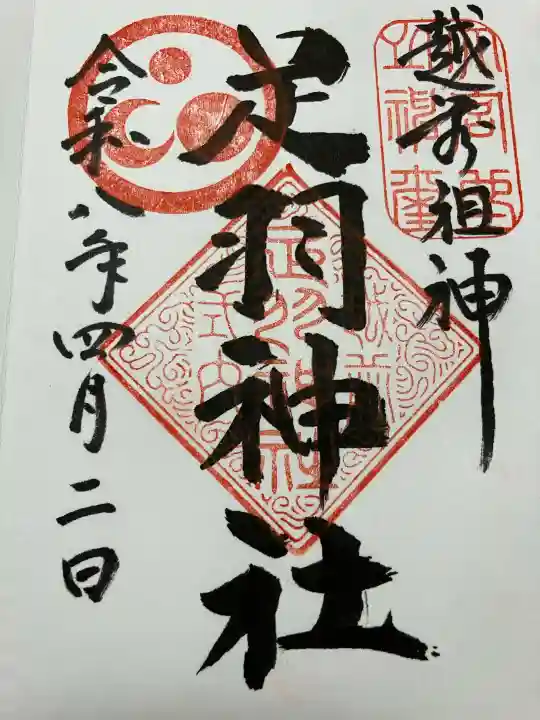 越前祖神
足羽神社
令和八年四月二日